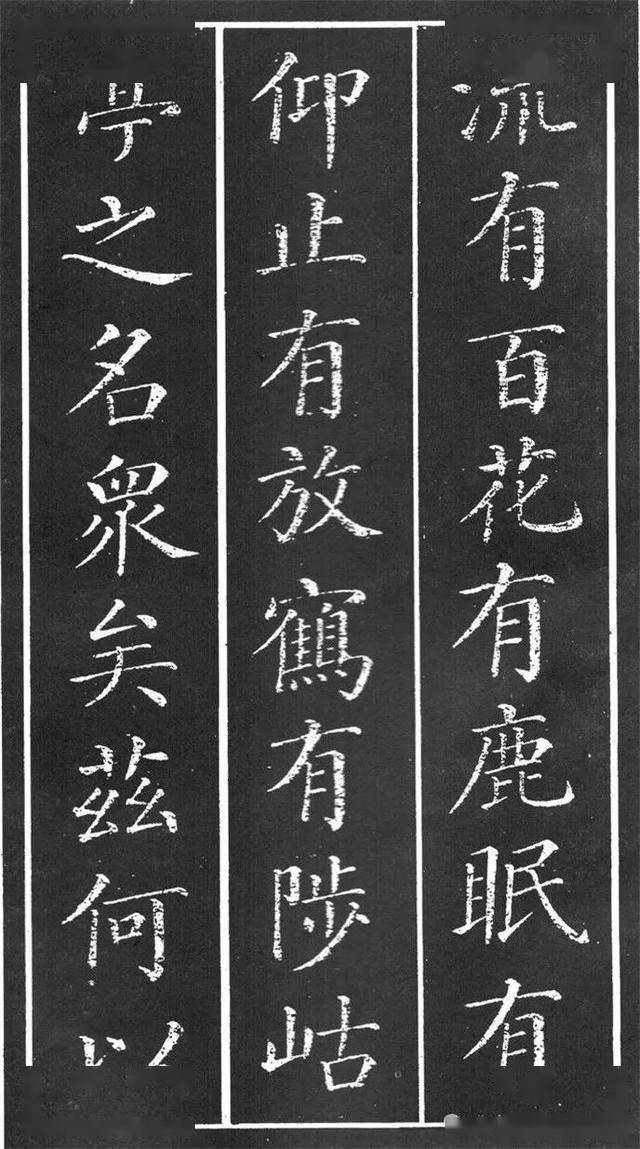 有百花有鹿眠有
仰止有放鶴有陟岵
之名眾矣茲何以